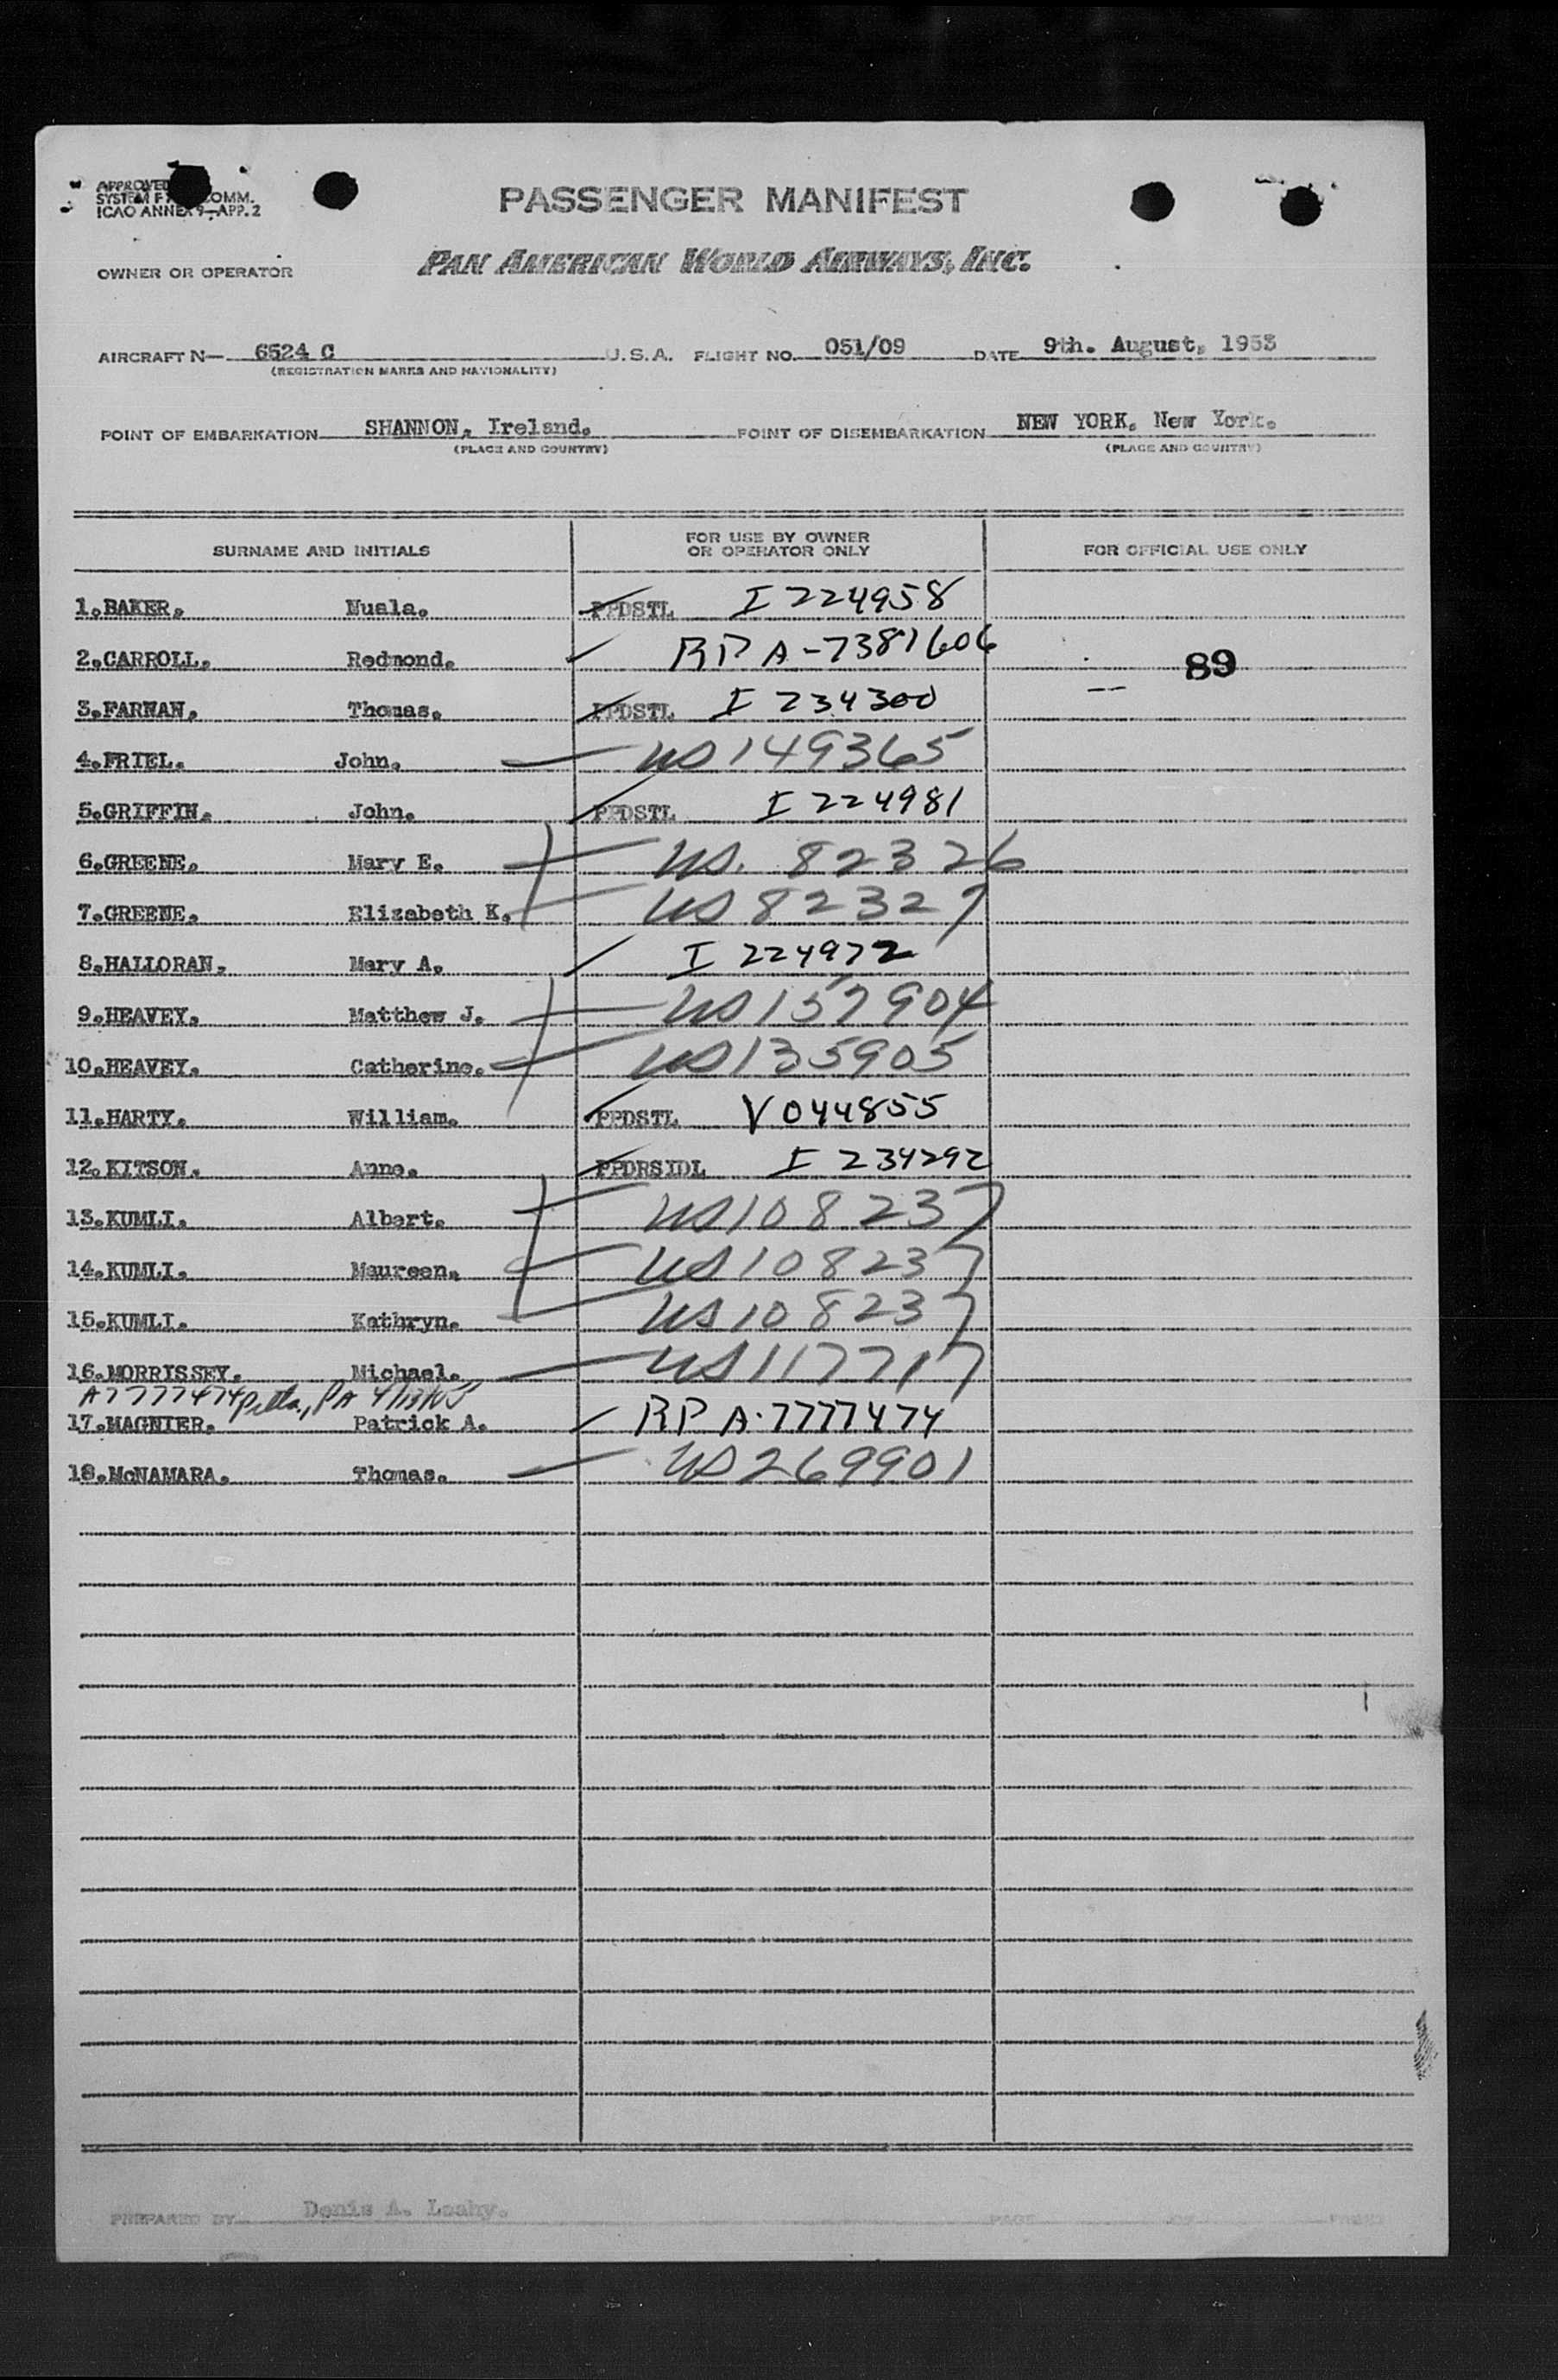 APPROVED
SYSTEM F COMM.
ICAO ANNEX 9—APP. 2
PASSENGER MANIFEST
OWNER OR OPERATOR PAN AMERICAN WORLD AIRWAYS, INC.
AIRCRAFT N— 6524 C U.S.A. FLIGHT NO. 051/09 DATE 9th. August, 1953
(REGISTRATION MARKS AND NATIONALITY)
POINT OF EMBARKATION SHANNON, Ireland. POINT OF DISEMBARKATION NEW YORK, New York.
(PLACE AND COUNTRY) (PLACE AND COUNTRY)
SURNAME AND INITIALS FOR USE BY OWNER OR OPERATOR ONLY FOR OFFICIAL USE ONLY
1.BAKER. Nuala. PPDSTL I 224958
2.CARROLL. Redmond. RP A-7381606 89
3.FARNAN. Thomas. PPDSTL I 234300
4.FRIEL. John. US 149365
5.GRIFFIN. John. PPDSTL I 224981
6.GREENE. Mary E. US. 82326
7.GREENE. Elizabeth K. US 82327
8.HALLORAN. Mary A. I 224972
9.HEAVEY. Matthew J. US 157904
10.HEAVEY. Catherine. US 135905
11.HARTY. William. PPDSTL V 044855
12.KITSON. Anne. PPDRSIDL I 234292
13.KUMLI. Albert. US 108237
14.KUMLI. Maureen. US 108237
15.KUMLI. Kathryn. US 108237
16.MORRISSEY. Michael. US 117717
A7777474 PA
17.MAGNIER. Patrick A. RP A-7777474
18.McNAMARA. Thomas. US 269901
PREPARED BY Denis A. Leahy. PAGE OF PAGES